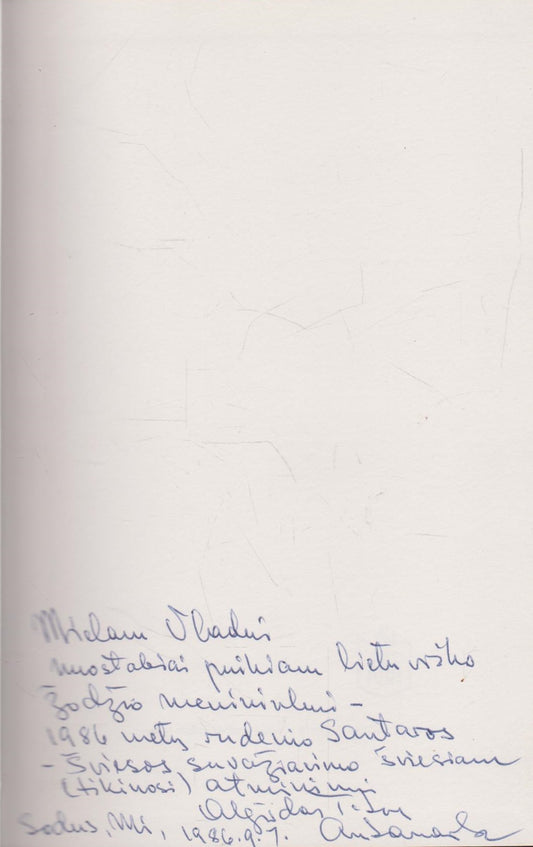 Mielam Vladui
nuostabiai puikiam lietuviško
žodžio menininkui –
1986 metų rudenio Santaros
– Šviesos suvažiavimo šviesiam
(tikiuosi) atminimui
Algirdas T.
Sodus, Mi, 1986.9.7. Antanaitis